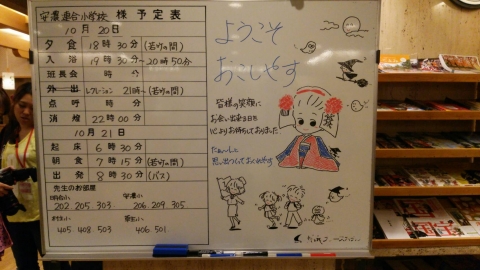 安濃 連合小学校 様 予定表
10月 20日
夕食 18時30分 (若竹の間)
入浴 19時30分 〜20時50分
班長会 時 分
外出 レクレーション 21時〜 (若竹の間)
点呼 時 分
消燈 22時00分
10月 21日
起床 6時30分
朝食 7時15分 (若竹の間)
出発 8時30分 (バス)
先生のお部屋
安濃小
202 205 303 206 209 305
405 408 503 406 501
ようこそ
おこしやす
皆様の笑顔に
お会い出来る日を
心よりお待ちしておりました!
たのしく
思い出つくっておくれやす